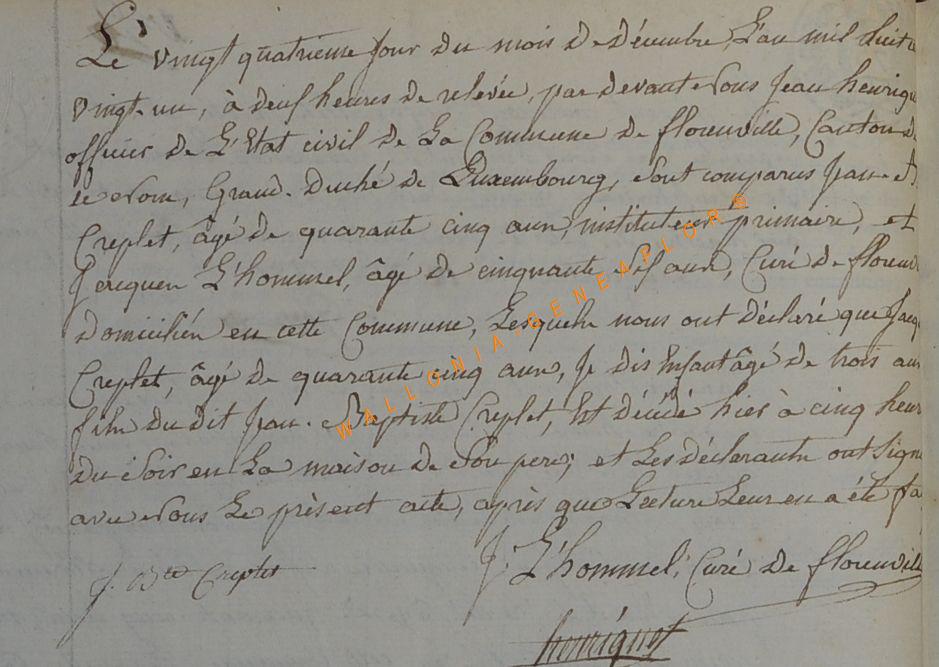 Le vingt quatrième jour du mois de décembre, L'an mil huit
vingt-un, à deux heures de relevée, par devant Nous Jean henriqu
officier de L'Etat civil de La Commune de florenville, Canton de
ce Nom, Grand-Duché de Luxembourg, sont comparus Jean-B
Creplet, âgé de quarante cinq ans, instituteur primaire, et
Jacques L'hommel, âgé de cinquante ans, Curé de florenv
domiciliés en cette Commune, Lesquels nous ont déclaré que Jacq
Creplet, âgé de quarante cinq ans, Je dis Enfant âgé de trois ans
fils du dit Jean-Baptiste Creplet, Est décédé hier à cinq heur
du soir en La maison de son père; et Les déclarants ont Sign
avec Nous Le présent acte, après que Lecture Leur en a été fa
J. Bte Creplet
J. L'hommel, Curé de florenville
henriquet
WALLONIA-GENEAPI.ORG